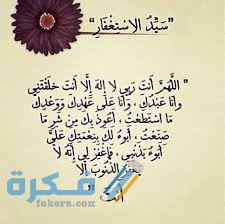 ”سَيِّدُ الِاسْتِغْفَارِ“
” اللَّهُمَّ أَنْتَ رَبِّي لَا إِلَهَ إِلَّا أَنْتَ خَلَقْتَنِي
وَأَنَا عَبْدُكَ ، وَأَنَا عَلَى عَهْدِكَ وَوَعْدِكَ
مَا اسْتَطَعْتُ ، أَعُوذُ بِكَ مِنْ شَرِّ مَا
صَنَعْتُ ، أَبُوءُ لَكَ بِنِعْمَتِكَ عَلَيَّ
أَبُوءُ بِذَنْبِي ، فَاغْفِرْ لِي إِنَّهُ لَا
الذُّنُوبَ إِلَّا
أَنْتَ “
فكرة
fekera.com